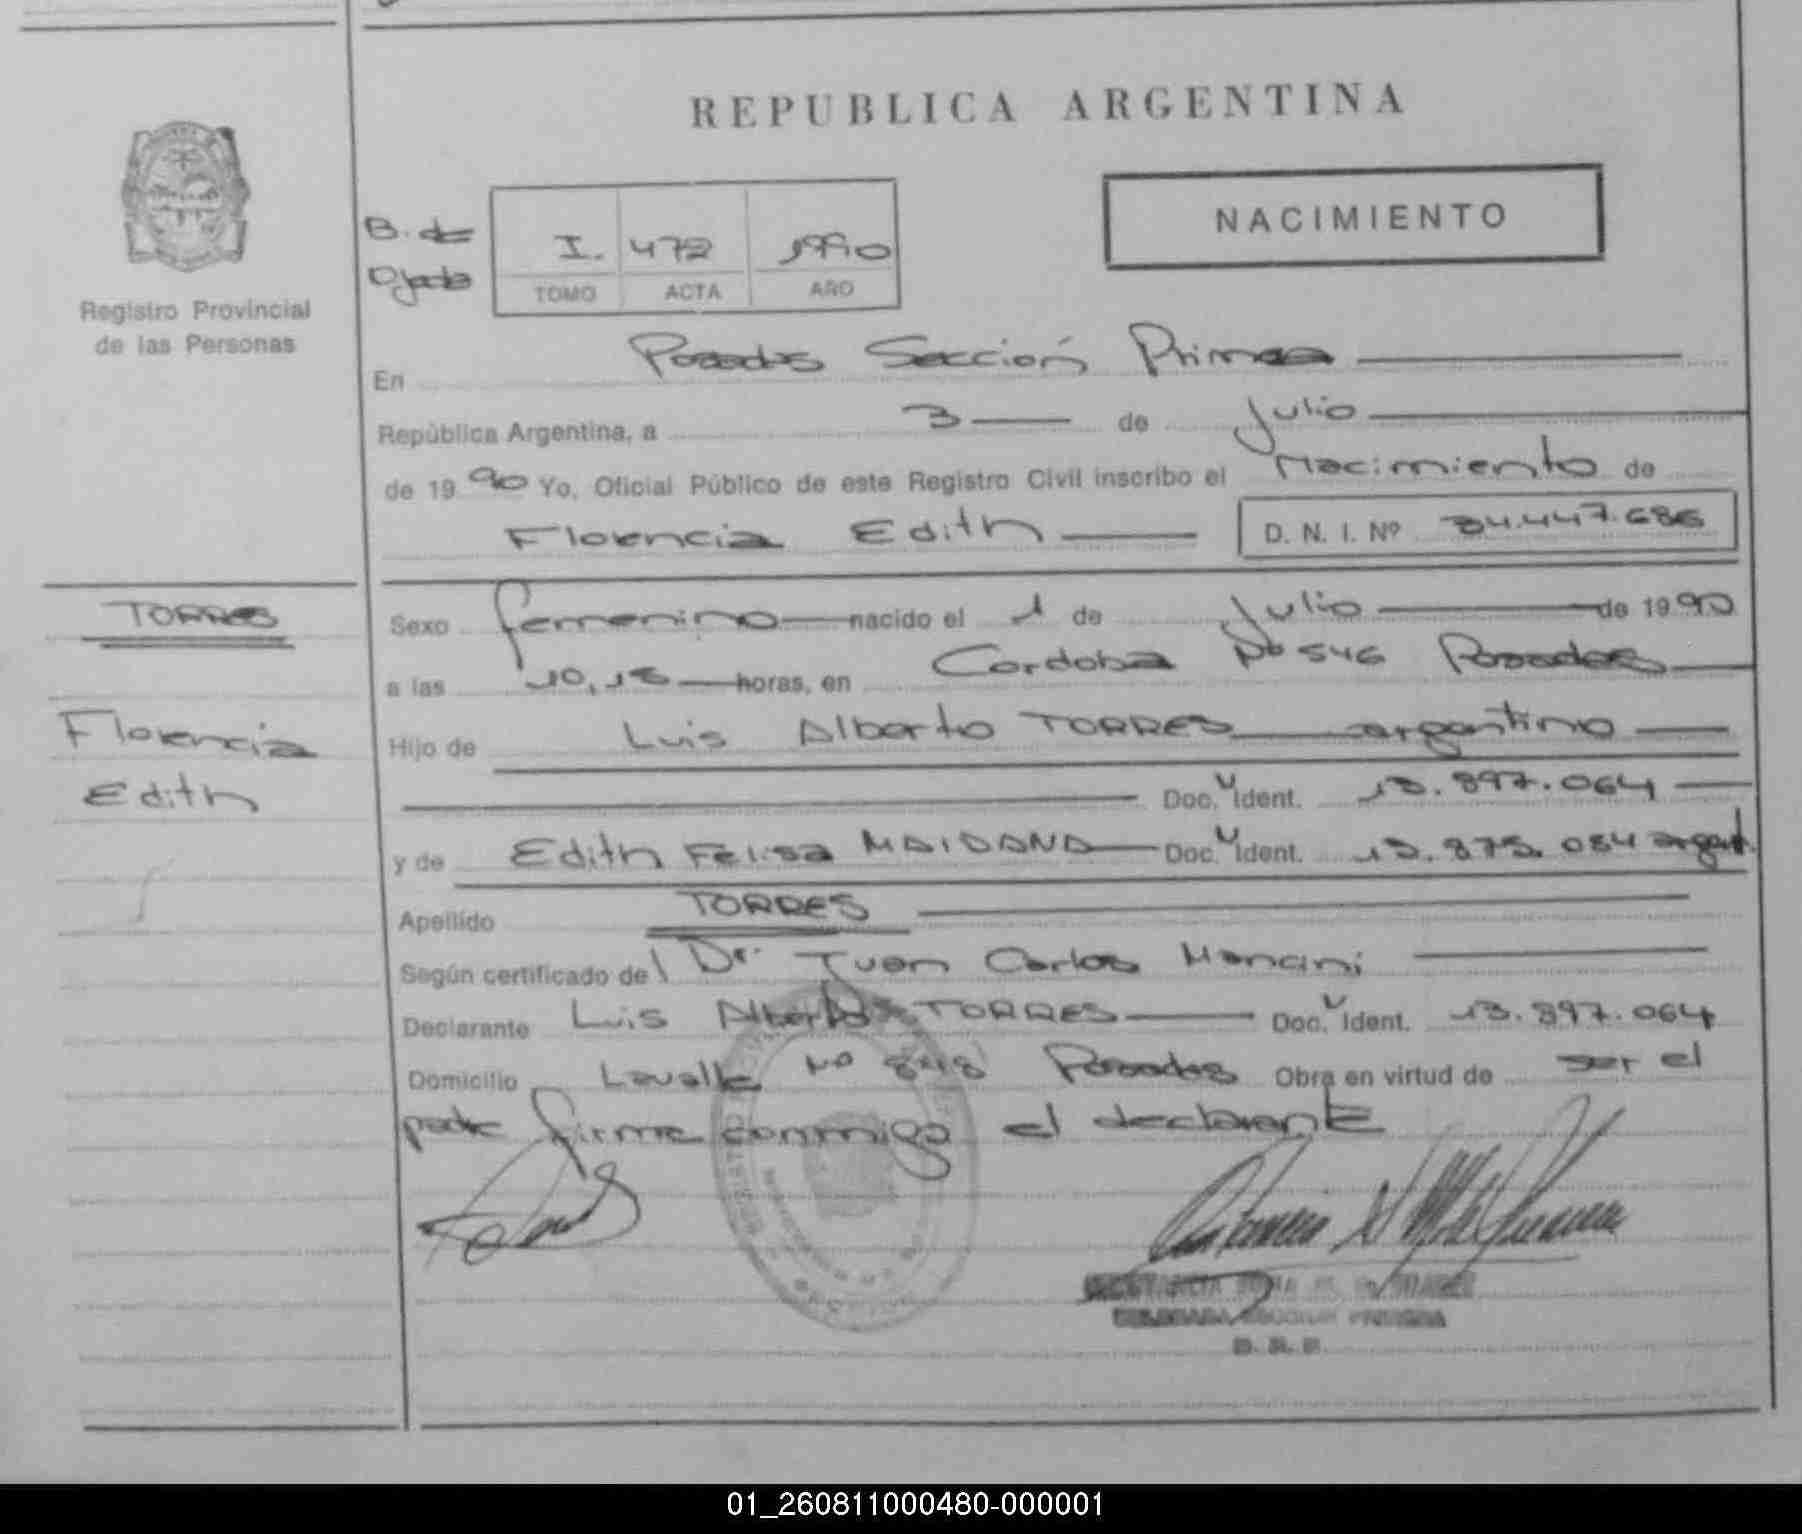 REPUBLICA ARGENTINA
NACIMIENTO
B. de
I. 472 1990
TOMO ACTA AÑO
Registro Provincial
de las Personas
En Posadas Sección Primera
República Argentina, a 3 de Julio
de 1990 Yo, Oficial Público de este Registro Civil inscribo el Nacimiento de
Florencia Edith D. N. I. Nº 34.447.686
TORRES
Florencia
Edith
Sexo femenino nacido el 1 de Julio de 1990
a las 10,15 horas, en Cordoba Nº 546 Posadas
Hijo de Luis Alberto TORRES argentino
Doc. Ident. 13.897.064
y de Edith Felisa MAIDANA Doc. Ident. 13.875.084 argent.
Apellido TORRES
Según certificado del Dr. Juan Carlos Mancini
Declarante Luis Alberto TORRES Doc. Ident. 13.897.064
Domicilio Lavalle Nº Posadas Obra en virtud de ser el
padre firma conmigo el declarante
DELEGADA SECCION PRIMERA
01_260811000480-000001